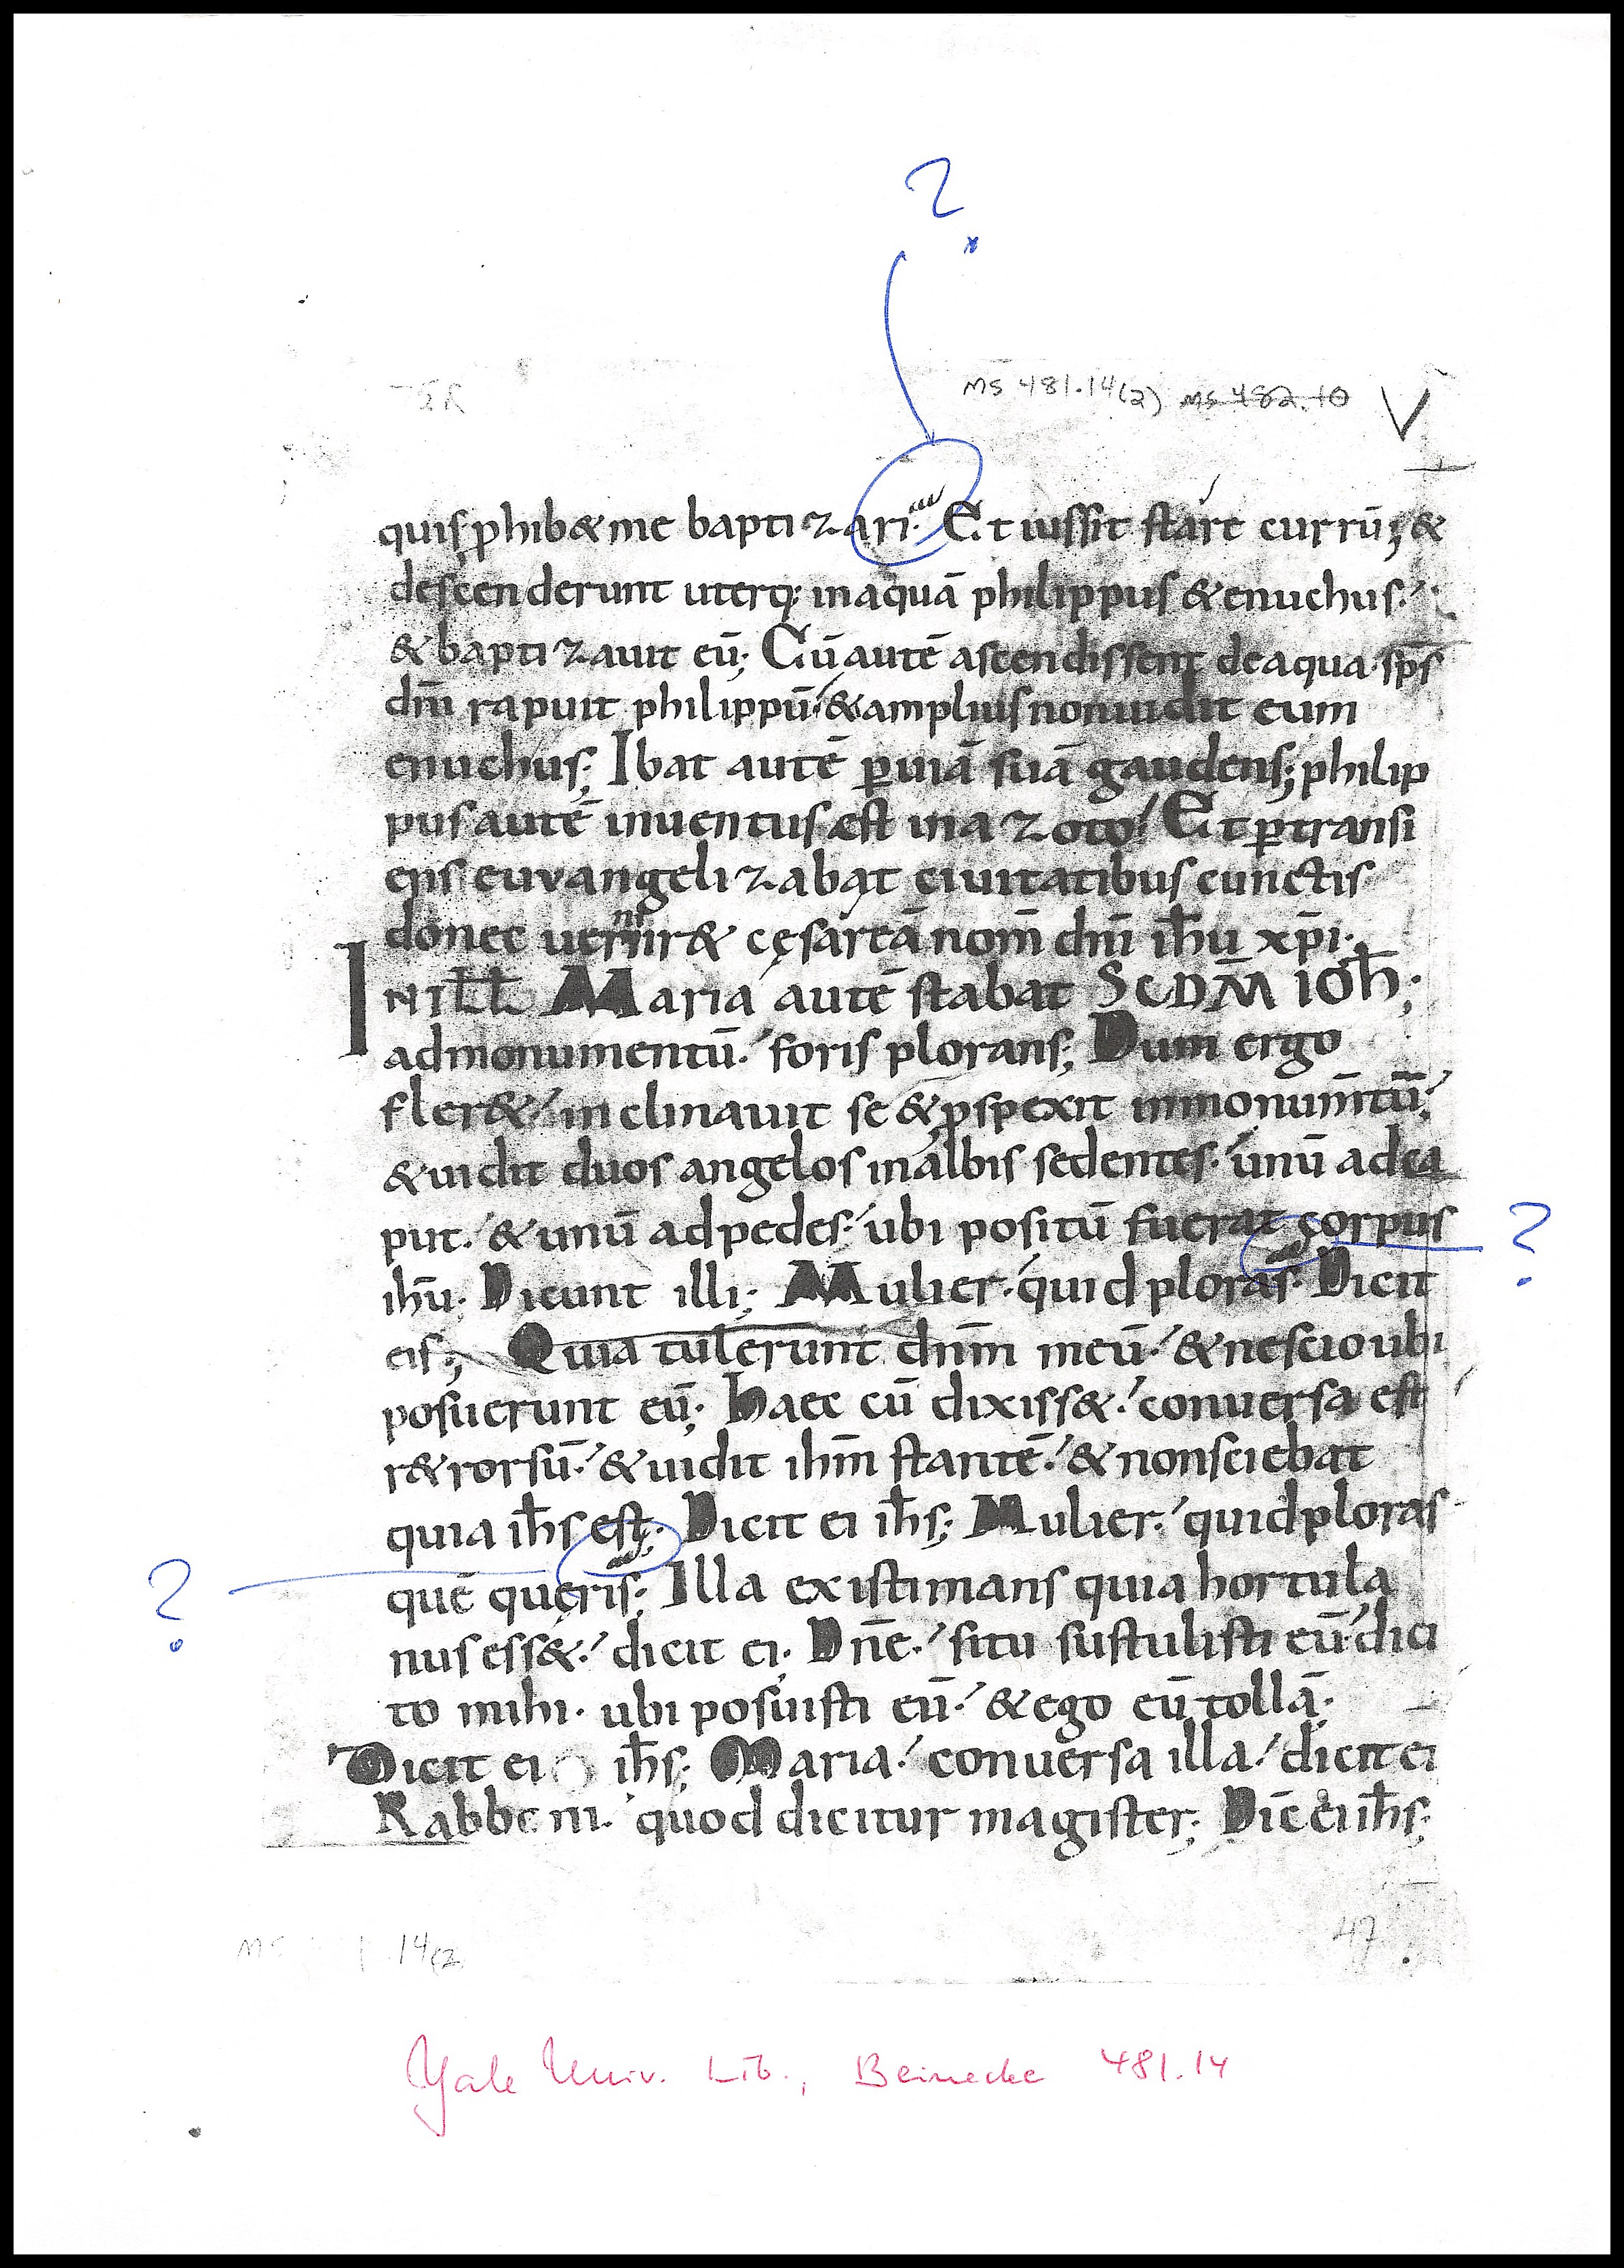 ?
MS 481.14(2) MS 482.10 V
quis ꝓhib& me bapti zari· Et iussit stare currū; &
descenderunt uterq; in aquā philippus & enuchus·
& bapti zauit eū; Cū autē ascendissent de aqua· sp̄s
dn̄i rapuit philippū· & amplius non uidit eum
enuchus; Ibat autē ꝑ uiā suā gaudens; philip
pus autē inuentus est in a zoto· Et ꝑtransi
ens euuangeli zabat ciuitatibus cunctis
donec uenir& cęsareā nom̄ dn̄i ih̄u xp̄i·
IN ILL̄ Maria autē stabat SCDM̄ IOH̄;
ad monumentū· foris plorans; Dum ergo
fler&· inclinauit se & ꝓspexit in monum̄tū;
& uidit duos angelos in albis sedentes· unū ad ca
put· & unū ad pedes· ubi positū fuerat corpus ?
ih̄u· Dicunt illi; Mulier· quid ploras· Dicit
eis; Quia tulerunt dnm̄ meū· & nescio ubi
posuerunt eū; haec cū dixiss&· conuersa est
r&rorsū· & uidit ihm̄ stantē· & non sciebat
quia ih̄s est; Dicit ei ih̄s; Mulier· quid ploras
? quē quęris; Illa existimans quia hortula
nus ess&· dicit ei· Dn̄e· si tu sustulisti eū· dici
to mihi· ubi posuisti eū· & ego eū tollā·
Dicit ei ih̄s; Maria· conuersa illa· dicit ei
Rabboni· quod dicitur magister; Dic̄ ei ih̄s;
47
14(2
Yale Univ. Lib., Beinecke 481.14